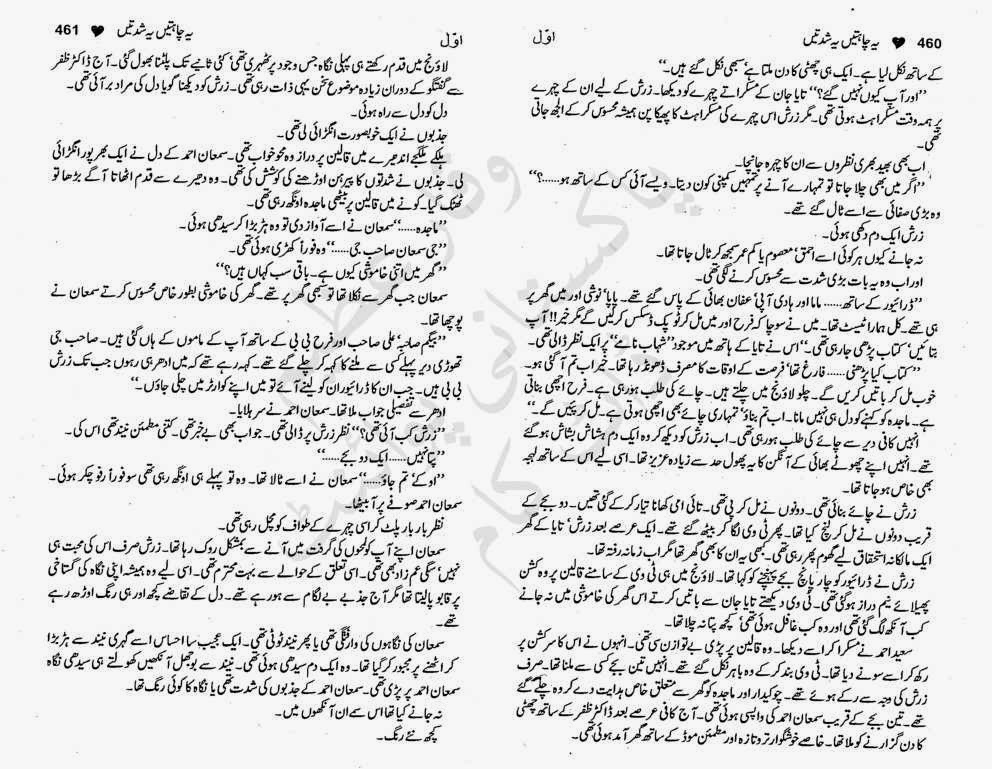 460 ♥ یہ چاہتیں یہ شدتیں اوّل
کے ساتھ نکل لیا ہے۔ ایک ہی چھٹی کا دن ملتا ہے‘ سبھی نکل گئے ہیں۔‘‘
’’اور آپ کیوں نہیں گئے؟‘‘ تایا جان کے مسکراتے چہرے کو دیکھا۔ زرش کے لیے ان کے چہرے
پر ہمہ وقت مسکراہٹ ہوتی تھی۔ مگر زرش اس چہرے کی مسکراہٹ کا پھیکا پن ہمیشہ محسوس کر کے الجھ جاتی
تھی۔
اب بھی بھید بھری نظروں سے ان کا چہرہ جانچا۔
’’اگر میں بھی چلا جاتا تو تمہارے آنے پر تمہیں کمپنی کون دیتا۔ ویسے آئی کس کے ساتھ ہو......؟‘‘
وہ بڑی صفائی سے اسے ٹال گئے تھے۔
زرش ایک دم دکھی ہوئی۔
نہ جانے کیوں ہر کوئی اسے احمق‘ معصوم یا کم عمر سمجھ کر ٹال جاتا تھا۔
اور اب وہ یہ بات بڑی شدت سے محسوس کرنے لگی تھی۔
’’ڈرائیور کے ساتھ...... ماما اور ہادی آپی‘ عفان بھائی کے پاس گئے تھے۔ پاپا‘ نوشی اور میں گھر پر
ہی تھے۔ کل ہمارا ٹیسٹ تھا۔ میں نے سوچا کہ فرح اور میں مل کر ٹوپک ڈسکس کر لیں گے مگر خیر!! آپ
بتائیں‘ کتاب پڑھی جا رہی تھی۔‘‘ اس نے تایا کے ہاتھ میں موجود ’’شہاب نامے‘‘ پر ایک نظر ڈالی تھی۔
’’کتاب کیا پڑھنی...... فارغ تھا‘ فرصت کے اوقات کا مصرف ڈھونڈ رہا تھا۔ خیر اب تم آ گئی ہو۔
خوب مل کر باتیں کریں گے۔ چلو لاؤنج میں چلتے ہیں۔ چائے کی طلب ہو رہی ہے۔ فرح اچھی بناتی
ہے۔ ماجدہ کو کہنے کو دل ہی نہیں مانا۔ اب تم بناؤ‘ تمہاری چائے بھی اچھی ہوتی ہے۔ مل کر پئیں گے۔‘‘
انہیں کافی دیر سے چائے کی طلب ہو رہی تھی۔ اب زرش کو دیکھ کر وہ ایک دم ہشاش بشاش ہو گئے
تھے۔ انہیں اپنے چھوٹے بھائی کے آنگن کا یہ پھول حد سے زیادہ عزیز تھا۔ اسی لیے اس کے ساتھ لہجہ
بھی خاص ہو جاتا تھا۔
زرش نے چائے بنائی تھی۔ دونوں نے مل کر پی تھی۔ تائی امی کھانا تیار کر کے گئی تھیں۔ دو بجے کے
قریب دونوں نے مل کر لنچ کیا تھا۔ پھر ٹی وی لگا کر بیٹھ گئے تھے۔ ایک عرصے بعد زرش‘ تایا کے گھر
ایک مالکانہ استحقاق لیے گھوم پھر رہی تھی۔ کبھی یہ ان کا بھی گھر تھا مگر اب زمانہ رفتہ تھا۔
زرش نے ڈرائیور کو چار پانچ بجے پہنچنے کو کہا تھا۔ لاؤنج میں ہی ٹی وی کے سامنے قالین پر وہ کشن
پھیلائے نیم دراز ہو گئی تھی۔ ٹی وی دیکھتے تایا جان سے باتیں کرتے اس گھر کی خاموشی میں نہ جانے
کب آنکھ لگ گئی تھی اور وہ کب غافل ہوئی تھی‘ کچھ پتا نہ چلا تھا۔
سعید احمد نے مسکرا کر اسے دیکھا۔ وہ قالین پر پڑی بے توازن سی تھی۔ انہوں نے اس کا سر کشن پر
رکھ کر اسے سونے دیا تھا۔ ٹی وی بند کر کے وہ باہر نکل گئے تھے۔ انہیں تین بجے کسی سے ملنا تھا۔ صرف
زرش کی وجہ سے رکے ہوئے تھے۔ چوکیدار اور ماجدہ کو گھر سے متعلق خاص ہدایت دے کر وہ چلے گئے
تھے۔ تین بجے کے قریب سمعان احمد کی واپسی ہوئی تھی۔ آج کافی عرصے بعد ڈاکٹر ظفر کے ساتھ چھٹی
کا دن گزارنے کو ملا تھا۔ خاصے خوشگوار تر و تازہ اور مطمئن موڈ کے ساتھ گھر آمد ہوئی تھی۔
461 ♥ یہ چاہتیں یہ شدتیں اوّل
لاؤنج میں قدم رکھتے ہی پہلی نگاہ جس وجود پر ٹھہری تھی‘ کئی ثانیے تک پلٹنا بھول گئی۔ آج ڈاکٹر ظفر
سے گفتگو کے دوران زیادہ موضوع سخن یہی ذات رہی تھی۔ زرش کو دیکھنا گویا دل کی مراد بر آئی تھی۔
دل کو دل سے راہ ہوئی۔
جذبوں نے ایک خوبصورت انگڑائی لی تھی۔
ہلکے ملگجے اندھیرے میں قالین پر دراز وہ محو خواب تھی۔ سمعان احمد کے دل نے ایک بھرپور انگڑائی
لی۔ جذبوں نے شدتوں کا پیرہن اوڑھنے کی کوشش کی تھی۔ وہ دھیرے سے قدم اٹھاتا آگے بڑھا تو
ٹھٹک گیا۔ کونے میں قالین پر بیٹھی ماجدہ اونگھ رہی تھی۔
’’ماجدہ......‘‘ سمعان نے اسے آواز دی تو وہ ہڑبڑا کر سیدھی ہوئی۔
’’جی سمعان صاحب جی......‘‘ وہ فوراً کھڑی ہوئی تھی۔
’’گھر میں اتنی خاموشی کیوں ہے۔ باقی سب کہاں ہیں؟‘‘
سمعان جب گھر سے نکلا تھا تو سبھی گھر پر تھے۔ گھر کی خاموشی بطور خاص محسوس کرتے سمعان نے
پوچھا تھا۔
’’بیگم صاحبہ‘ علی صاحب اور فرح بی بی کے ساتھ آپ کے ماموں کے ہاں گئی ہیں۔ صاحب جی
تھوڑی دیر پہلے کسی سے ملنے کا کہہ کر چلے گئے تھے۔ کہہ رہے تھے کہ میں ادھر ہی رہوں جب تک زرش
بی بی ہیں۔ جب ان کا ڈرائیور ان کو لینے آئے تو میں اپنے کوارٹر میں چلی جاؤں۔‘‘
ادھر سے تفصیلی جواب ملا تھا۔ سمعان احمد نے سر ہلایا۔
’’زرش کب آئی تھی؟‘‘ نظر زرش پر ڈالی تھی۔ جواب بھی بے خبر تھی۔ کتنی مطمئن نیند تھی اس کی۔
’’پتا نہیں...... ایک دو بجے......‘‘
’’اوکے‘ تم جاؤ......‘‘ سمعان نے اسے ٹالا تھا۔ وہ تو پہلے ہی اونگھ رہی تھی سو فوراً رفو چکر ہوئی۔
سمعان احمد صوفے پر آ بیٹھا۔
نظر بار بار پلٹ کر اسی چہرے کے طواف کو مچل رہی تھی۔
سمعان اپنے آپ کو لمحوں کی گرفت میں آنے سے بمشکل روک رہا تھا۔ زرش صرف اس کی محبت ہی
نہیں‘ سگی عم زاد بھی تھی۔ اسی تعلق کے حوالے سے بہت محترم تھی۔ اسی لیے وہ ہمیشہ اپنی نگاہ کی گستاخی
پر قابو پا لیتا تھا مگر آج جذبے بے لگام سے ہو رہے تھے۔ دل کے تقاضے کچھ اور ہی رنگ اوڑھ رہے
تھے۔
سمعان کی نگاہوں کی وارفتگی تھی یا پھر نیند ٹوٹی تھی۔ ایک عجیب سا احساس اسے گہری نیند سے ہڑبڑا
کر اٹھنے پر مجبور کر گیا تھا۔ وہ ایک دم سیدھی ہوئی تھی۔ نیند سے بوجھل آنکھیں کھولتے ہی سیدھی نگاہ
سمعان احمد پر پڑی تھی۔ سمعان احمد کے جذبوں کی شدت تھی یا نگاہ کا کوئی رنگ تھا۔
نہ جانے کیا تھا اس سے ان آنکھوں میں۔
کچھ نئے رنگ۔